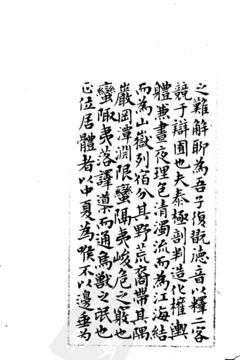 之難解聊為吾子復翫德音以釋二客
競于辯囿也夫泰極剖判造化權輿
體兼晝夜理包清濁流而為江海結
而為山嶽列宿分其野荒裔帶其隅
巖岡潭淵限蠻隔夷峻危之竅也
蠻陬夷落譯導而通鳥獸之氓也
正位居體者以中夏為喉不以邊垂為